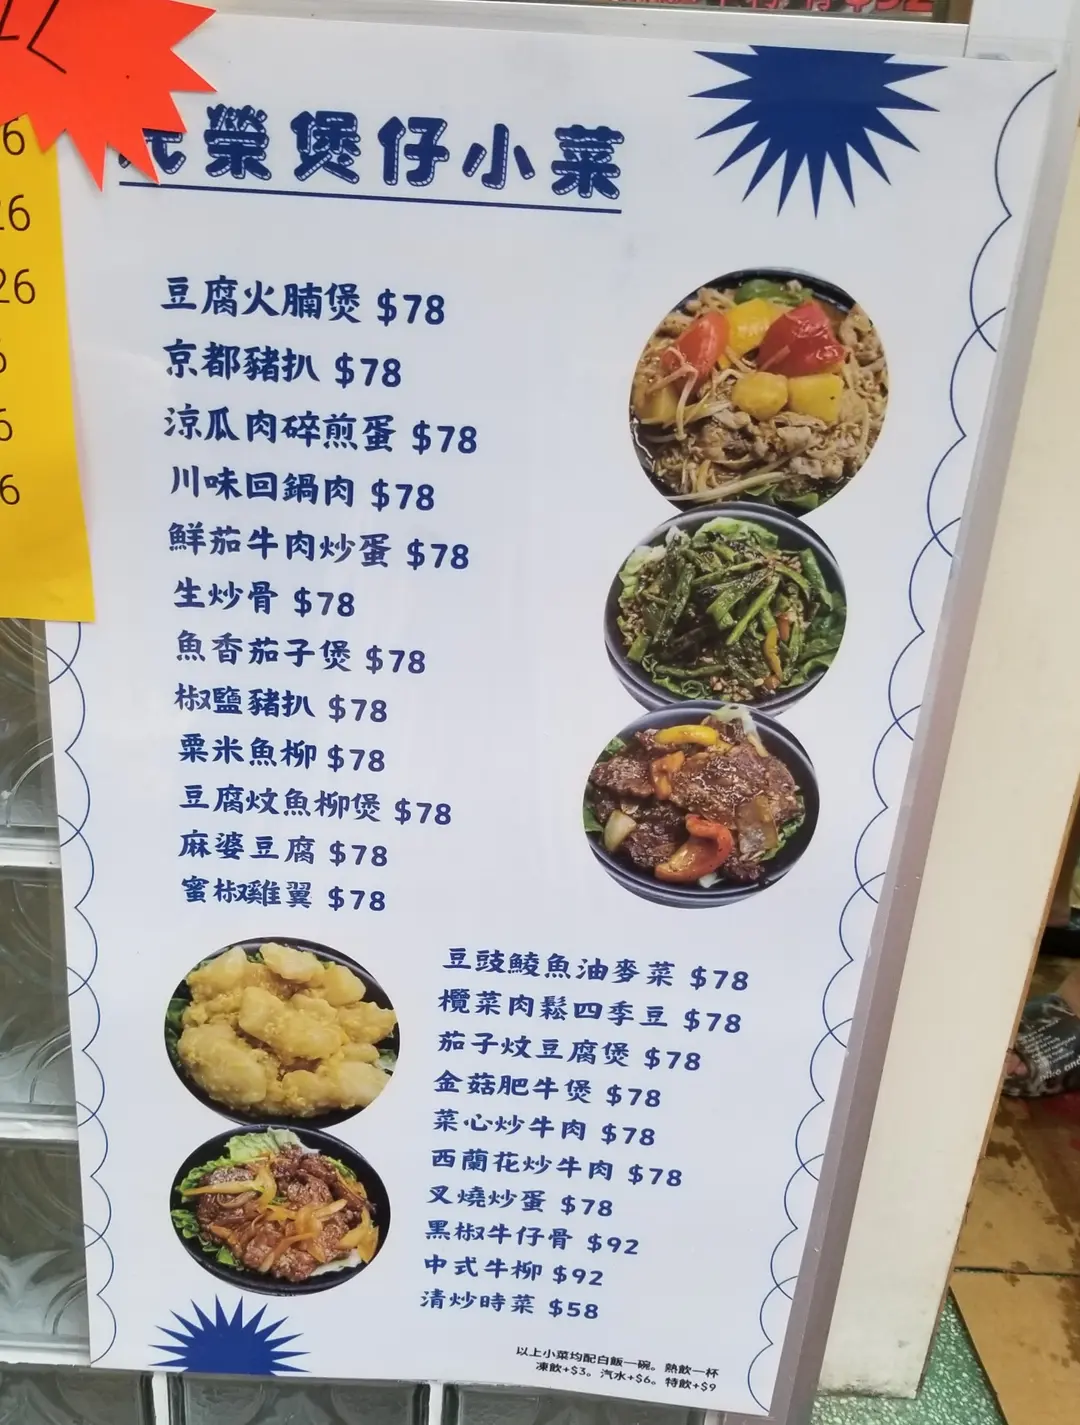 榮煲仔小菜
豆腐火腩煲 $78
京都豬扒 $78
涼瓜肉碎煎蛋 $78
川味回鍋肉 $78
鮮茄牛肉炒蛋 $78
生炒骨 $78
魚香茄子煲 $78
椒鹽豬扒 $78
粟米魚柳 $78
豆腐炆魚柳煲 $78
麻婆豆腐 $78
蜜椒雞翼 $78
豆豉鯪魚油麥菜 $78
欖菜肉鬆四季豆 $78
茄子炆豆腐煲 $78
金菇肥牛煲 $78
菜心炒牛肉 $78
西蘭花炒牛肉 $78
叉燒炒蛋 $78
黑椒牛仔骨 $92
中式牛柳 $92
清炒時菜 $58
以上小菜均配白飯一碗。熱飲一杯
凍飲+$3。汽水+$6。特飲+$9
6
26
26
6
6